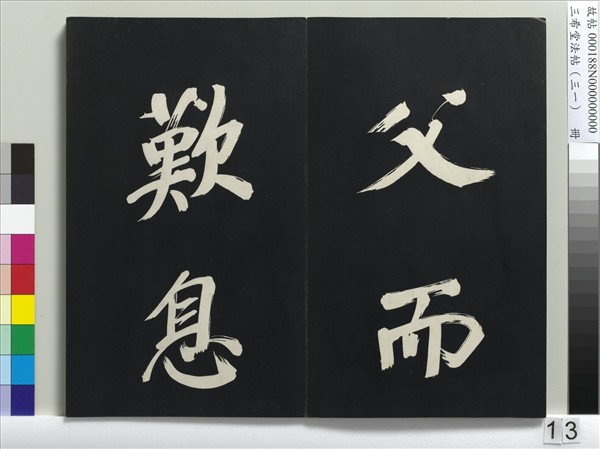 父而
歎息
故帖 000188N000000000
三希堂法帖(三一) 冊
13